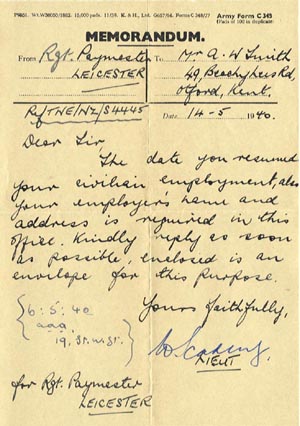 P9851. Wt.W30050/1862. 15,000 pads. 11/39. K. & H., Ltd. G657/64. Forms C348/27
Army Form C 348
(Pads of 100 in duplicate)
MEMORANDUM.
From Rgt. Paymester To Mr A. W Smith
LEICESTER 49, Beachy Lees Rd
Otford, Kent.
Rf/TNE/NZ/S4445 Date 14-5 1940.
Dear Sir,
The date you resumed
your civilian employment, also
your employer's name and
address is required in this
office. Kindly reply as soon
as possible, enclosed is an
envelope for this purpose.
Yours faithfully,
6:5:40
LIEUT
for Rgt. Paymester
LEICESTER